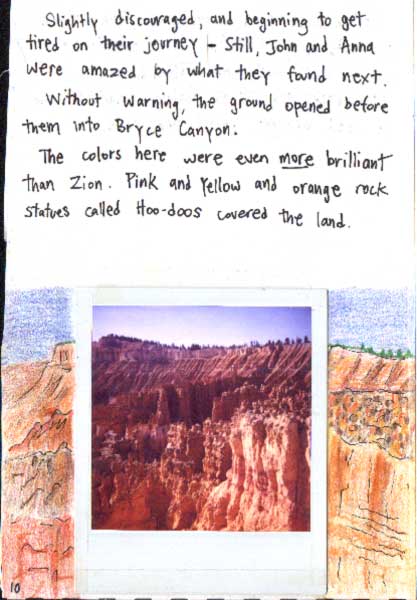 Slightly discouraged, and beginning to get
tired on their journey - Still, John and Anna
were amazed by what they found next.
Without warning, the ground opened before
them into Bryce Canyon.
The colors here were even more brilliant
than Zion. Pink and Yellow and orange rock
statues called Hoo-doos covered the land.
10